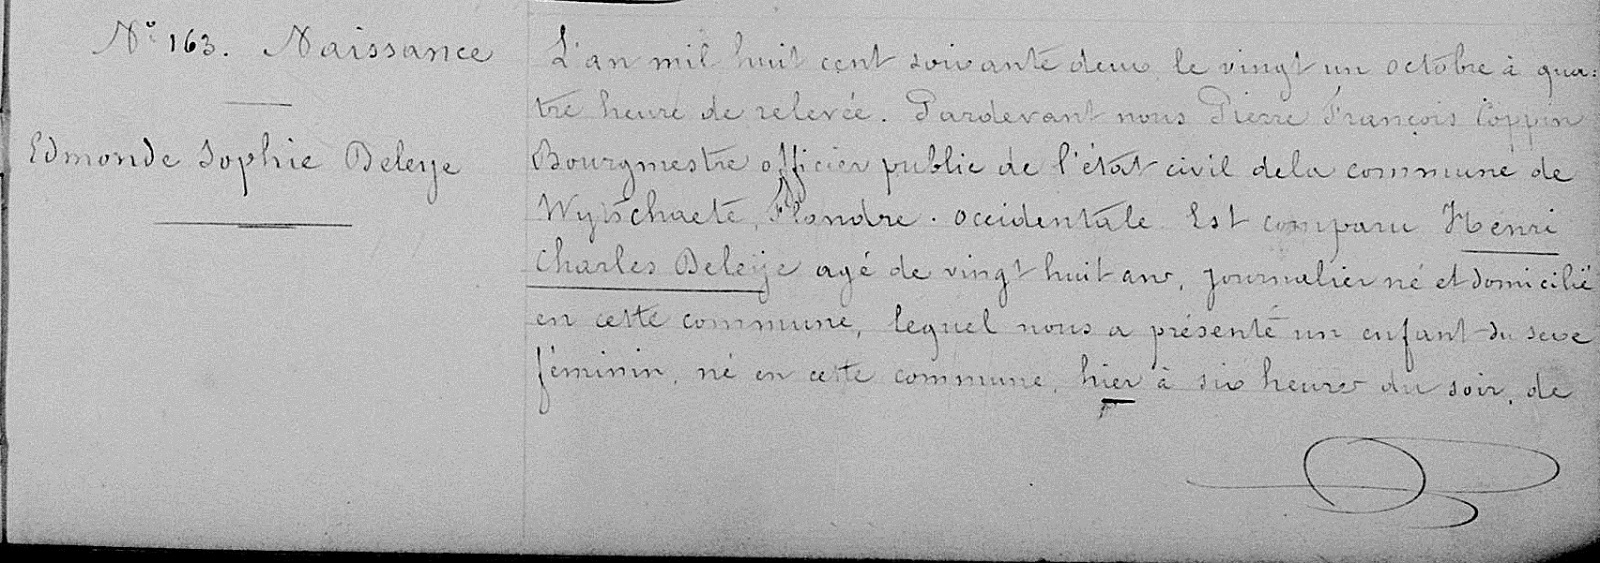 Nº 163. Naissance
Edmonde Sophie Deleye
L'an mil huit cent soixante deux, le vingt un octobre à qua=
tre heure de relevée. Pardevant nous Pierre François Coppin
Bourgmestre officier public de l'état civil dela commune de
Wytschaete, Flandre. occidentale Est comparu Henri
Charles Deleije agé de vingt huit ans, journalier né et domicilié
en cette commune, lequel nous a présenté un enfant du sexe
féminin, né en cette commune, hier à six heures du soir, de